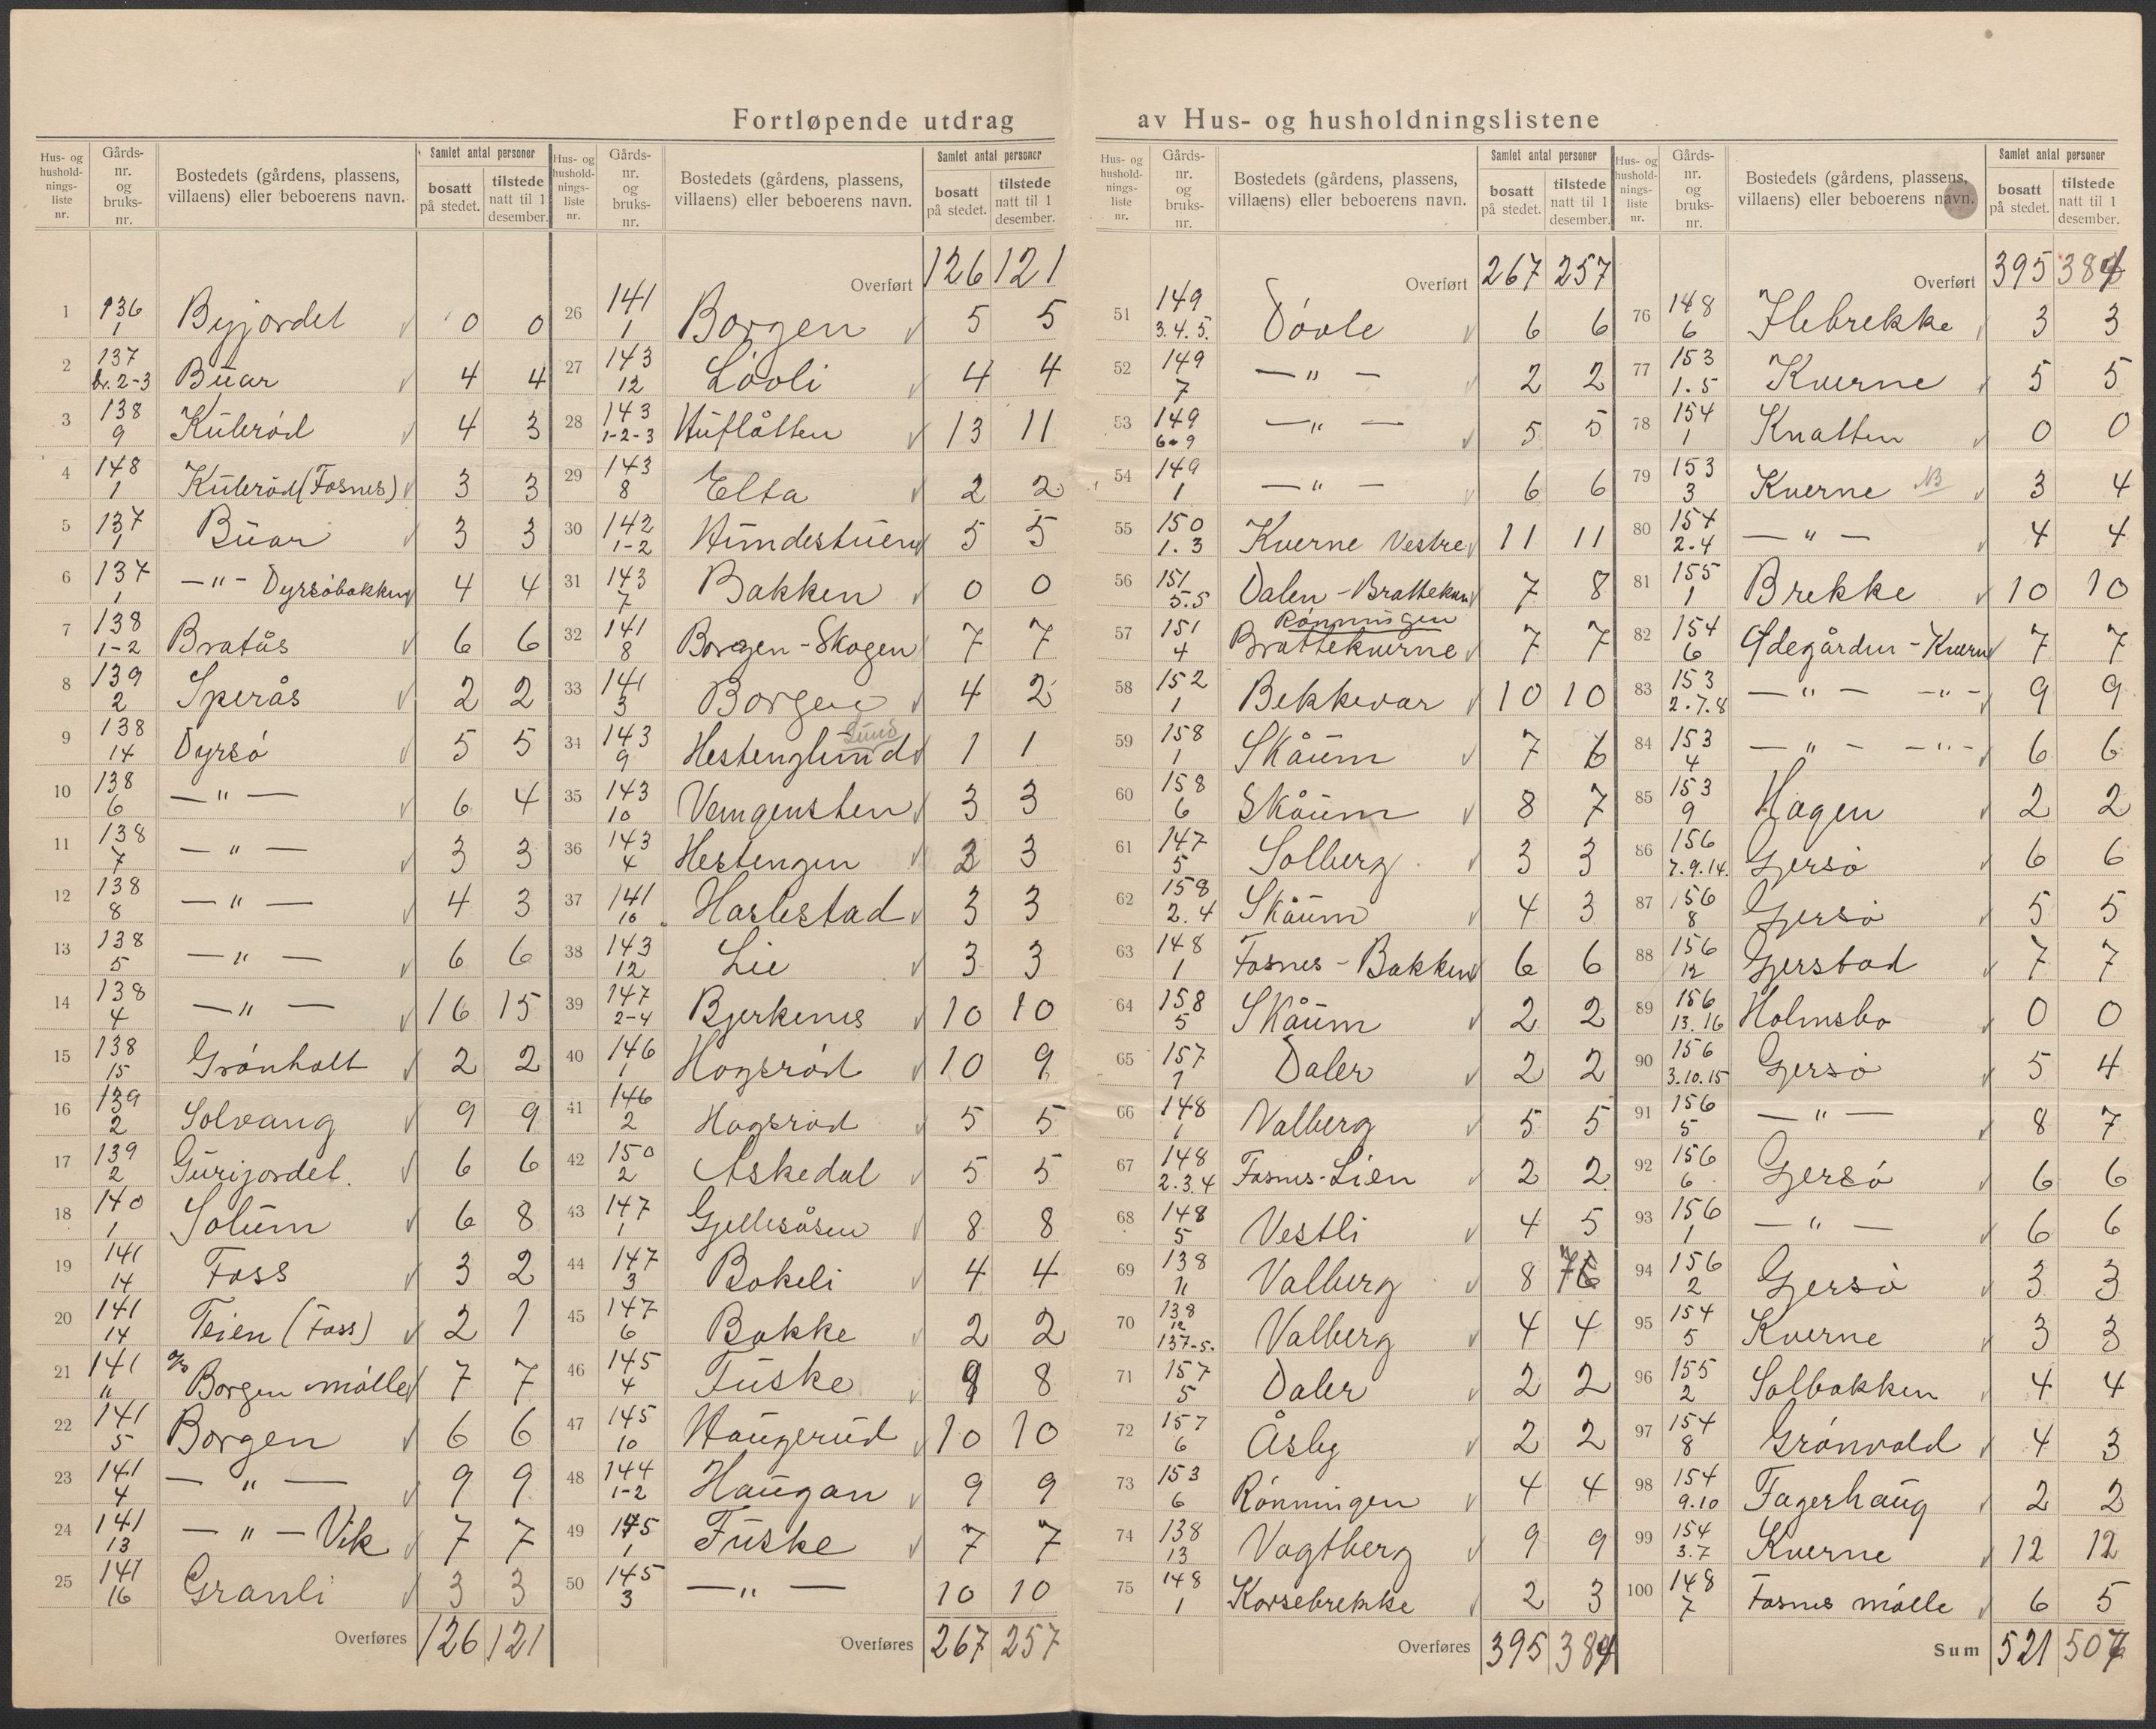 Fortløpende utdrag av Hus- og husholdningslistene
Hus- og husholdnings-liste nr. | Gårds-nr. og bruks-nr. | Bostedets (gårdens, plassens, villaens) eller beboerens navn. | Samlet antal personer bosatt på stedet. | tilstede natt til 1 desember.
1 136/1 Byjordet 0 0
2 137/br. 2-3 Buar 4 4
3 138/9 Kulerød 4 3
4 148/1 Kulerød (Fosnes) 3 3
5 137/1 Buar 3 3
6 137/1 —"— Dyrsøbakken 4 4
7 138/1-2 Bratås 6 6
8 139/2 Sperås 2 2
9 138/14 Dyrsø 5 5
10 138/6 —"— 6 4
11 138/7 —"— 3 3
12 138/8 —"— 4 3
13 138/5 —"— 6 6
14 138/4 —"— 16 15
15 138/15 Grønholt 2 2
16 139/2 Solvang 9 9
17 139/2 Gurijordet. 6 6
18 140/1 Solum 6 8
19 141/14 Foss 3 2
20 141/14 Teien (Foss) 2 1
21 141/" Borgen mølle 7 7
22 141/5 Borgen 6 6
23 141/4 —"— 9 9
24 141/13 —"— Vik 7 7
25 141/16 Granli 3 3
Overføres 126 121
Hus- og husholdnings-liste nr. | Gårds-nr. og bruks-nr. | Bostedets (gårdens, plassens, villaens) eller beboerens navn. | Samlet antal personer bosatt på stedet. | tilstede natt til 1 desember.
Overført 126 121
26 141/1 Borgen 5 5
27 143/12 Løvli 4 4
28 143/1-2-3 Huflåtten 13 11
29 143/8 Elta 2 2
30 142/1-2 Hundestuen 5 5
31 143/7 Bakken 0 0
32 141/8 Borgen-Skogen 7 7
33 141/3 Borgen 4 2
34 143/9 Hestenglund sund 1 1
35 143/10 Vemgensten 3 3
36 143/4 Hestengen 3 3
37 141/10 Haslestad 3 3
38 143/12 Lie 3 3
39 147/2-4 Bjerkenes 10 10
40 146/1 Hogsrød 10 9
41 146/2 Hogsrød 5 5
42 150/2 Askedal 5 5
43 147/1 Gjellesåsen 8 8
44 147/3 Bokeli 4 4
45 147/6 Bakke 2 2
46 145/4 Fuske 9 8
47 145/10 Haugerud 10 10
48 144/1-2 Haugan 9 9
49 145/1 Fuske 7 7
50 145/3 —"— 10 10
Overføres 267 257
Hus- og husholdnings-liste nr. | Gårds-nr. og bruks-nr. | Bostedets (gårdens, plassens, villaens) eller beboerens navn. | Samlet antal personer bosatt på stedet. | tilstede natt til 1 desember.
Overført 267 257
51 149/3.4.5. Døvle 6 6
52 149/7 —"— 2 2
53 149/6-9 —"— 5 5
54 149/1 —"— 6 6
55 150/1.3 Kverne Vestre 11 11
56 151/5.5 Dalen-Brattekvern 7 8
57 151/4 Rønningen Brattekverne 7 7
58 152/1 Bekkevar 10 10
59 158/1 Skåum 7 6
60 158/6 Skåum 8 7
61 147/5 Solberg 3 3
62 158/2.4 Skåum 4 3
63 148/1 Fosnes-Bakken 6 6
64 158/5 Skåum 2 2
65 157/1 Daler 2 2
66 148/1 Valberg 5 5
67 148/2.3.4 Fosnes-Lien 2 2
68 148/5 Vestli 4 5
69 138/11 Valberg 8 7
70 138/12 137-5. Valberg 4 4
71 157/5 Daler 2 2
72 157/6 Åsly 2 2
73 153/6 Rønningen 4 4
74 138/13 Vagtberg 9 9
75 148/1 Korsebrekke 2 3
Overføres 395 384
Hus- og husholdnings-liste nr. | Gårds-nr. og bruks-nr. | Bostedets (gårdens, plassens, villaens) eller beboerens navn. | Samlet antal personer bosatt på stedet. | tilstede natt til 1 desember.
Overført 395 384
76 148/6 Ilebrekke 3 3
77 153/1.5 Kverne 5 5
78 154/1 Knatten 0 0
79 153/3 Kverne 3 4
80 154/2.4 —"— 4 4
81 155/1 Brekke 10 10
82 154/6 Ødegården-Kvern 7 7
83 153/2.7.8 —"— —"— 9 9
84 153/4 —"— —"— 6 6
85 153/9 Hagen 2 2
86 156/7.9.14. Gjersø 6 6
87 156/8 Gjersø 5 5
88 156/12 Gjerstad 7 7
89 156/13.16 Holmsbo 0 0
90 156/3.10.15 Gjersø 5 4
91 156/5 —"— 8 7
92 156/6 Gjersø 6 6
93 156/1 —"— 6 6
94 156/2 Gjersø 3 3
95 154/5 Kverne 3 3
96 155/2 Solbakken 4 4
97 154/8 Grønvold 4 3
98 154/9.10 Fagerhaug 2 2
99 154/3.7 Kverne 12 12
100 148/7 Fosnes mølle 6 5
Sum 521 507